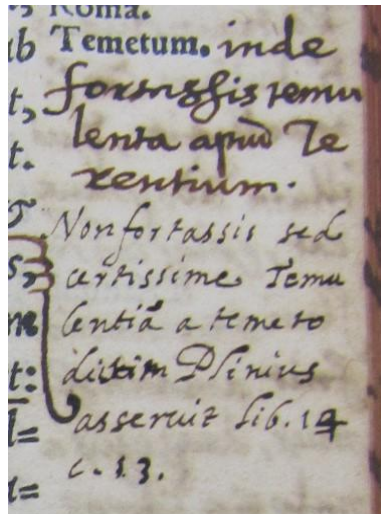 Roma.
Temetum. inde
fortassis temu
lenta apud Te
rentium.
Non fortassis sed
certissime Temu
lentiā a temeto
Plinius
asseruit lib. 14
c. 13.